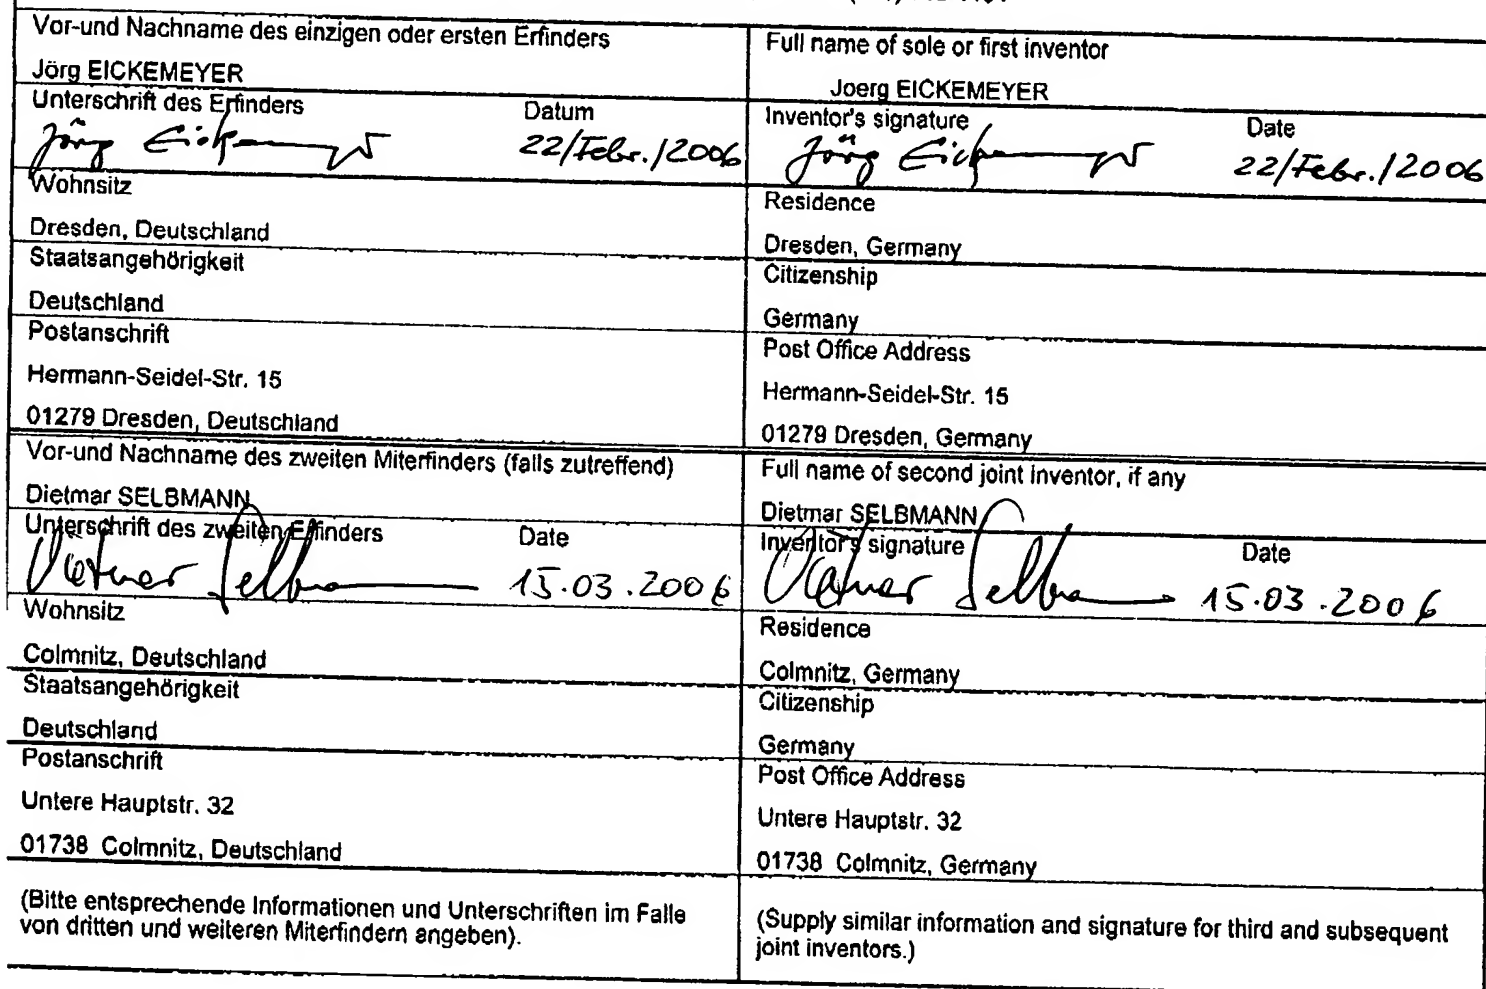 Vor-und Nachname des einzigen oder ersten Erfinders
Jörg EICKEMEYER
Unterschrift des Erfinders Datum
Jörg Eickemeyer 22/Febr./2006
Wohnsitz
Dresden, Deutschland
Staatsangehörigkeit
Deutschland
Postanschrift
Hermann-Seidel-Str. 15
01279 Dresden, Deutschland
Vor-und Nachname des zweiten Miterfinders (falls zutreffend)
Dietmar SELBMANN
Unterschrift des zweiten Erfinders Date
Dietmar Selbmann 15.03.2006
Wohnsitz
Colmnitz, Deutschland
Staatsangehörigkeit
Deutschland
Postanschrift
Untere Hauptstr. 32
01738 Colmnitz, Deutschland
(Bitte entsprechende Informationen und Unterschriften im Falle
von dritten und weiteren Miterfindern angeben).
Full name of sole or first inventor
Joerg EICKEMEYER
Inventor's signature Date
Jörg Eickemeyer 22/Febr./2006
Residence
Dresden, Germany
Citizenship
Germany
Post Office Address
Hermann-Seidel-Str. 15
01279 Dresden, Germany
Full name of second joint inventor, if any
Dietmar SELBMANN
Inventor's signature Date
Dietmar Selbmann 15.03.2006
Residence
Colmnitz, Germany
Citizenship
Germany
Post Office Address
Untere Hauptstr. 32
01738 Colmnitz, Germany
(Supply similar information and signature for third and subsequent
joint inventors.)